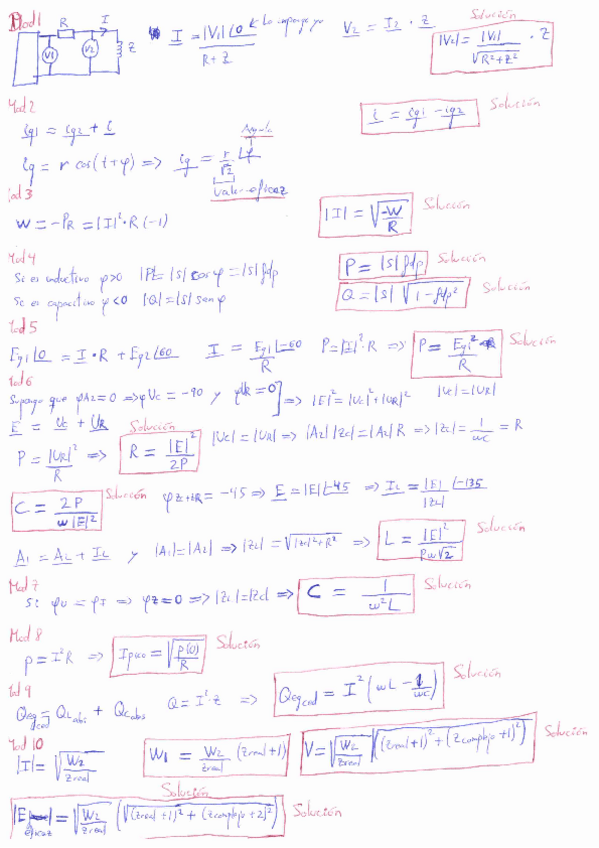 Mod 1
R I
V1 V2 Z
I = |V1| ∠0 / R+Z
Lo impongo yo
V2 = I2 · Z
Solución
|V2| = |V1| / √(R²+Z²) · Z
Mod 2
ig1 = ig2 + i
i = ig1 - ig2
Solución
ig = r cos(t+φ) => ig = r/√2 ∠φ
Angulo
Valor eficaz
Mod 3
W = -PR = |I|²·R(-1)
|I| = √(-W/R)
Solución
Mod 4
Si es inductivo φ>0 |P| = |S| cosφ = |S| fdp
Si es capacitivo φ<0 |Q| = |S| senφ
P = |S| fdp
Solución
Q = |S| √(1-fdp²)
Solución
Mod 5
Eg1∠0 = I·R + Eg2∠60 I = Eg1∠-60 / R P = |I|²·R => P = Eg1² / R
Solución
Mod 6
Supongo que φA2=0 => φUc = -90 y φUR=0 => |E|² = |Uc|²+|UR|² |Uc|=|UR|
E = Uc + UR
Solución
P = |UR|² / R => R = |E|² / 2P
|Uc|=|UR| => |A2||Zc|=|A2|R => |Zc| = 1/wc = R
C = 2P / w|E|²
Solución
φZ+R = -45 => E = |E|∠-45 => IL = |E| / |ZL| ∠-135
A1 = A2 + IL y |A1|=|A2| => |ZL| = √(|Zc|²+R²) => L = |E|² / Pw√2
Solución
Mod 7
Si φU = φI => φZ=0 => |ZL|=|Zc| => C = 1 / w²L
Solución
Mod 8
P = I²R => Ipico = √(P(0)/R)
Solución
Mod 9
Qeq ced = QL abs + Qc abs Q = I²·Z => Qeq ced = I² (wL - 1/wc)
Solución
Mod 10
|I| = √(W2/Zreal)
W1 = W2/Zreal (Zreal+1)
V = √(W2/Zreal) √((Zreal+1)²+(Zcomplejo+1)²)
Solución
Solución
|E| eficaz = √(W2/Zreal) (√((Zreal+1)²+(Zcomplejo+2)²))
Solución